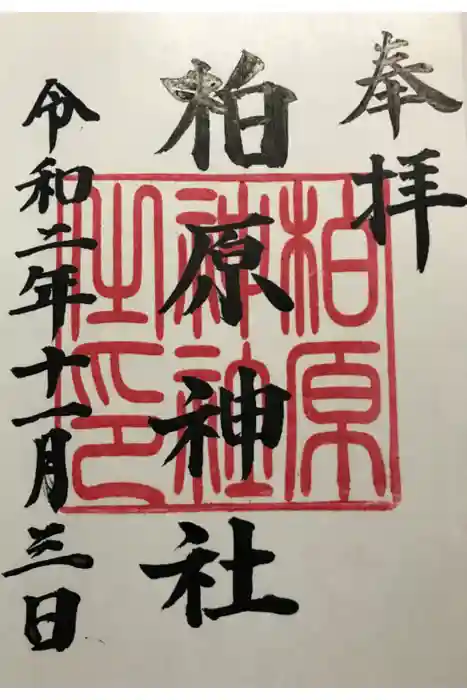 奉拝
柏原神社
柏原
神社
之印
令和二年十一月三日